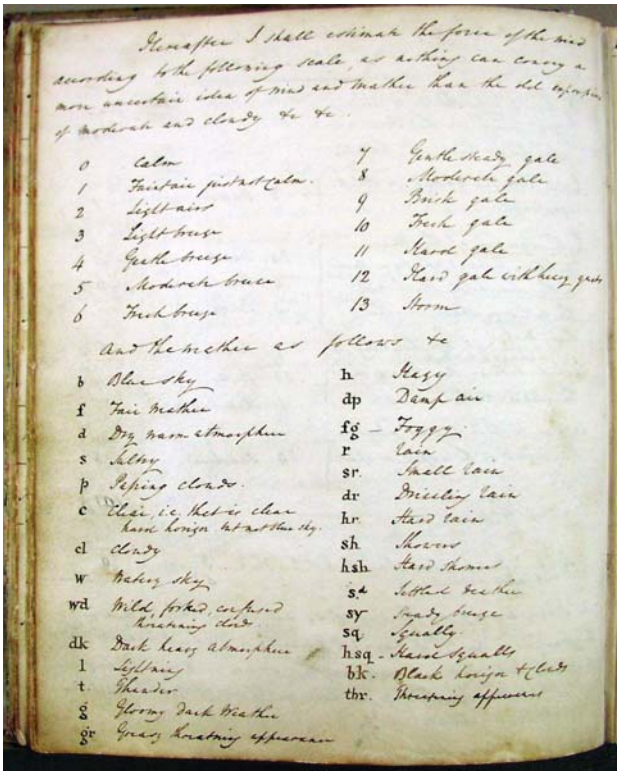 Hereafter I shall estimate the force of the wind
according to the following scale, as nothing can convey a
more uncertain idea of wind and weather than the old expressions
of moderate and cloudy &c &c.
0 Calm
1 Faint air just not calm.
2 Light airs
3 Light breeze
4 Gentle breeze
5 Moderate breeze
6 Fresh breeze
7 Gentle steady gale
8 Moderate gale
9 Brisk gale
10 Fresh gale
11 Hard gale
12 Hard gale with heavy gusts
13 Storm
and the weather as follows &c
b Blue sky
f Fair weather
d Dry warm atmosphere
s Sultry
p Passing clouds.
c Clear, i.e. that is clear
hard horizon but not blue sky.
cl Cloudy
w Watery sky
wd Wild, forked, confused
threatening clouds.
dk Dark heavy atmosphere
l Lightning
t. Thunder
g Gloomy dark weather
gr Greasy threatning appearance
h Hazy
dp Damp air
fg – Foggy.
r rain
sr. Small rain
dr Drizzling rain
hr. Hard rain
sh Showers
hsh Hard showers
s.d Settled weather
sy Steady breeze
sq Squally.
hsq – Hard squalls
bk. Black horizon & clouds
thr. Threatening appearance